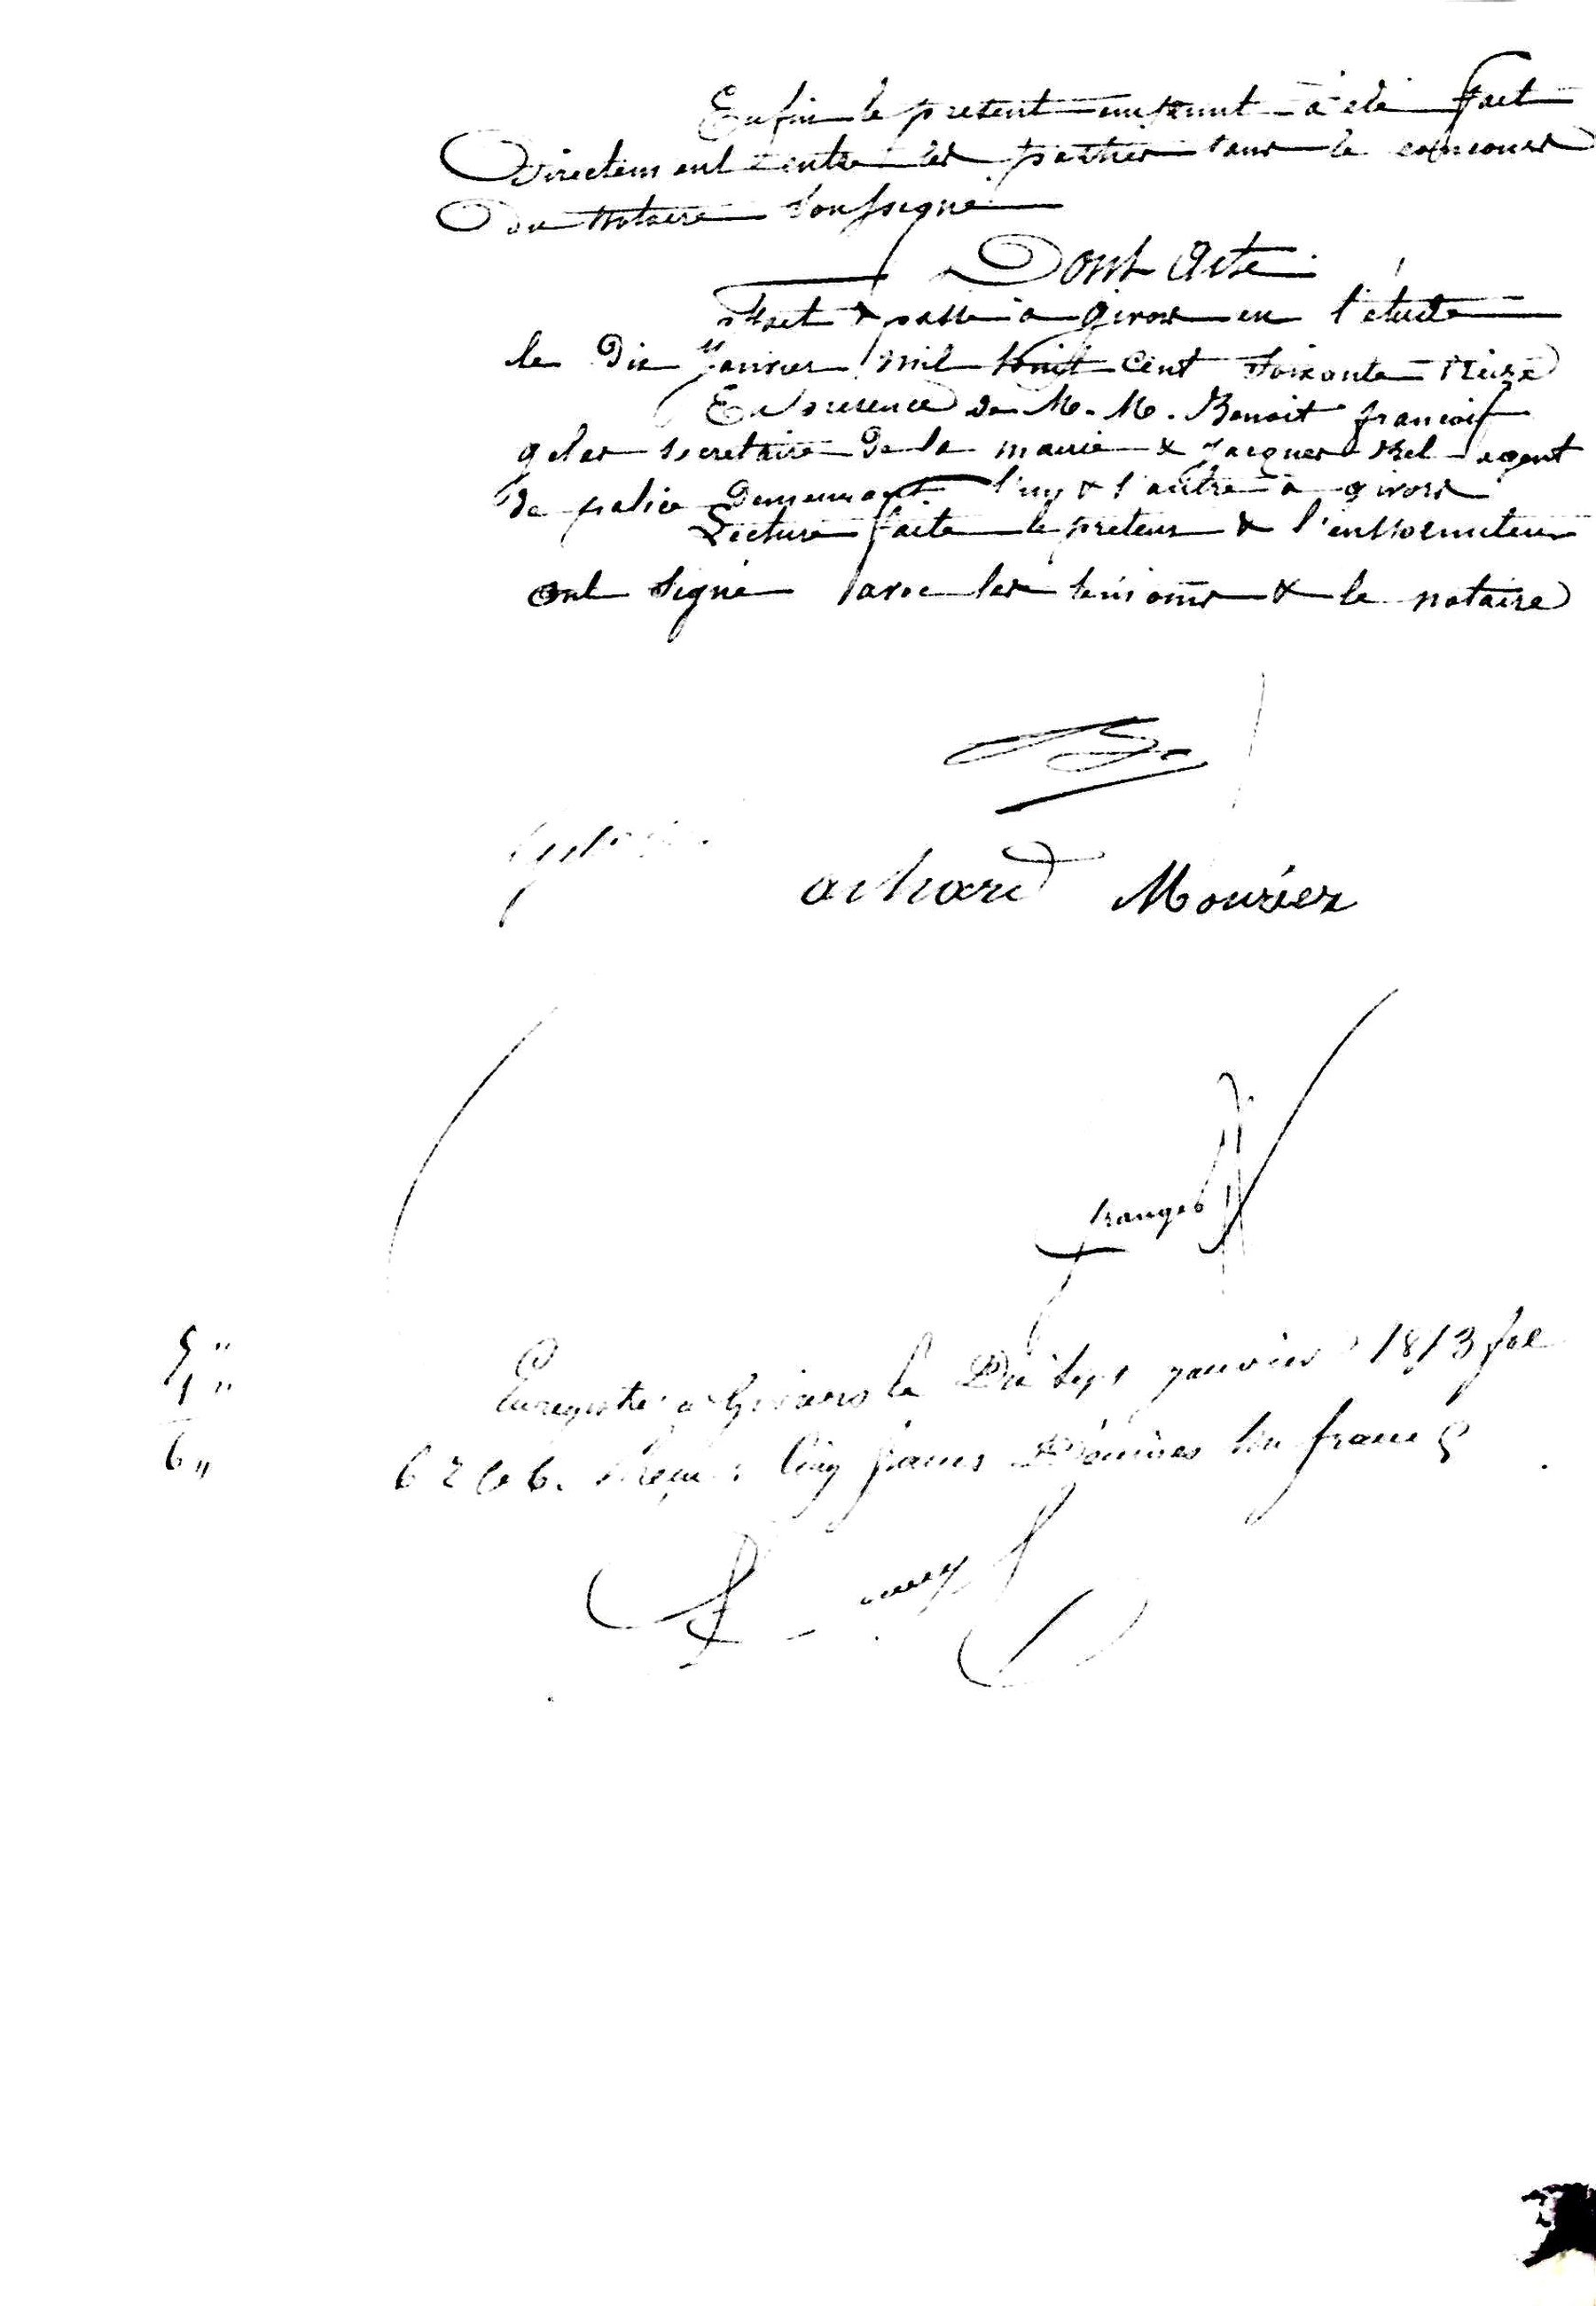 Enfin le present emprunt à été fait
Directement entre les parties sans le concours
du Notaire Soussigné
Dont Acte
Fait & passé à givors en l'étude
le Dix Janvier mil huit Cent Soixante treize
En présence de M. M. Benoit françois
gelas secretaire de la mairie & Jacques Bel agent
de police demeurant l'un & l'autre à givors
Lecture faite le preteur & l'emprunteur
ont signé avec les témoins & le notaire
Achard Mourier
5 "
1 "
6 "
Enregistré à Givors le Dix Sept janvier 1873 fol
62 C 6. Reçu: Cinq francs Décimes Un franc